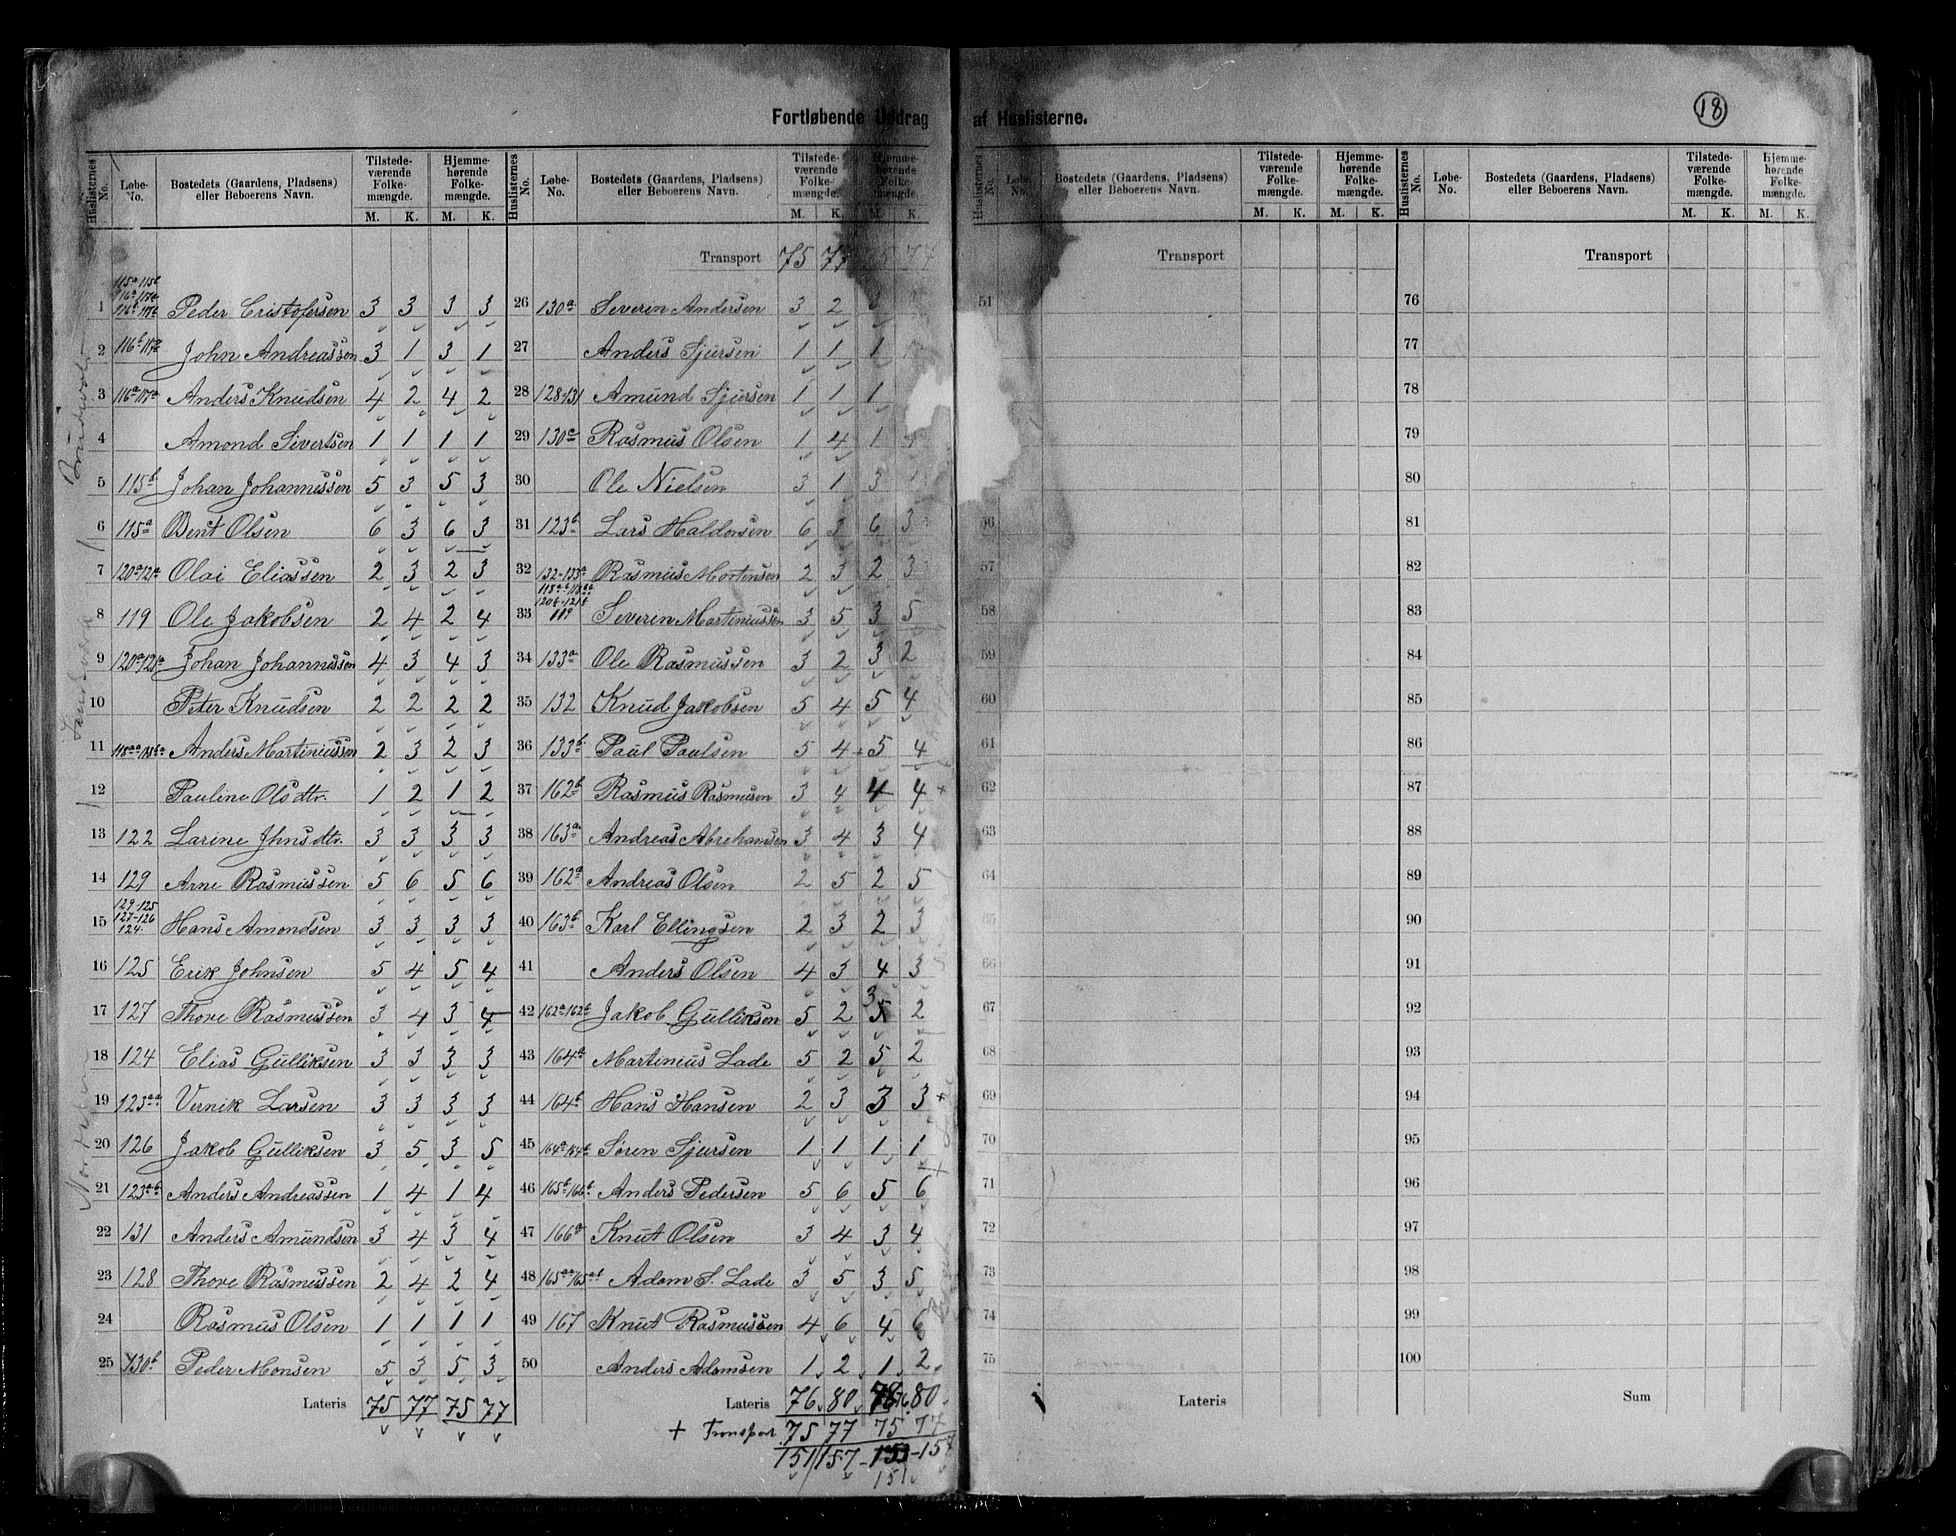 18
Fortløbende Uddrag af Huslisterne.
Huslisternes No. Løbe-No. Bostedets (Gaardens, Pladsens) eller Beboerens Navn. Tilstede-værende Folke-mængde. M. K. Hjemme-hørende Folke-mængde. M. K.
1 Peder Cristofersen 3 3 3 3
2 John Andreassen 3 1 3 1
3 116a 117a Anders Knudsen 4 2 4 2
4 Amond Sivertsen 1 1 1 1
5 115b Johan Johannessen 5 3 5 3
6 115a Bent Olsen 6 3 6 3
7 120a 121a Olai Eliassen 2 3 2 3
8 119 Ole Jakobsen 2 4 2 4
9 120a 121a Johan Johannissen 4 3 4 3
10 Peter Knudsen 2 2 2 2
11 Anders Martiniussen 2 3 2 3
12 Pauline Olsdtr. 1 2 1 2
13 122 Larine Jhnsdtr. 3 3 3 3
14 129 Arne Rasmussen 5 6 5 6
15 129-125 127-126 124. Hans Amondsen 3 3 3 3
16 125 Erik Johnsen 5 4 5 4
17 127 Thore Rasmussen 3 4 3 4
18 124 Elias Gulliksen 3 3 3 3
19 123aa Vernik Larsen 3 3 3 3
20 126 Jakob Gulliksen 3 5 3 5
21 123ab Anders Andreassen 1 4 1 4
22 131 Anders Amundsen 3 4 3 4
23 128 Thore Rasmussen 2 4 2 4
24 Rasmus Olsen 1 1 1 1
25 130b Peder Monsen 5 3 5 3
Lateris 75 77 75 77
Huslisternes No. Løbe-No. Bostedets (Gaardens, Pladsens) eller Beboerens Navn. Tilstede-værende Folke-mængde. M. K. Hjemme-hørende Folke-mængde. M. K.
Transport 75 77 75 77
26 130a Severin Andersen 3 2 3
27 Anders Sjursen 1 1 1
28 128-131 Amund Sjursen 1 1 1
29 130a Rasmus Olsen 1 4 1 4
30 Ole Nielsen 3 1 3
31 123b Lars Haldorsen 6 3 6 3
32 132-133a Rasmus Mortensen 2 3 2 3
33 119 Severin Martiniussen 3 5 3 5
34 133a Ole Rasmussen 3 2 3 2
35 132 Knud Jakobsen 5 4 5 4
36 133b Paul Paulsen 5 4 5 4
37 162b Rasmus Rasmusen 3 4 4 4
38 163a Andreas Abrehamsen 3 4 3 4
39 162a Andreas Olsen 2 5 2 5
40 163b Karl Ellingsen 2 3 2 3
41 Anders Olsen 4 3 4 3
42 162a 162b Jakob Gulliksen 5 2 5 3 2
43 164a Martinius Lade 5 2 5 2
44 164b Hans Hansen 2 3 3 3
45 164a 164b Søren Sjursen 1 1 1 1
46 165b 166b Anders Pedersen 5 6 5 6
47 166a Knut Olsen 3 4 3 4
48 165aa 165ab Adam S. Lade 3 5 3 5
49 167 Knut Rasmussen 4 6 4 6
50 Anders Adamsen 1 2 1 2
Lateris 76 80 78 80
+ Transport 75 77 75 77
151 157 153 157
151
Huslisternes No. Løbe-No. Bostedets (Gaardens, Pladsens) eller Beboerens Navn. Tilstede-værende Folke-mængde. M. K. Hjemme-hørende Folke-mængde. M. K.
Transport
51
56
57
58
59
60
61
62
63
64
65
66
67
68
69
70
71
72
73
74
75
Lateris
Huslisternes No. Løbe-No. Bostedets (Gaardens, Pladsens) eller Beboerens Navn. Tilstede-værende Folke-mængde. M. K. Hjemme-hørende Folke-mængde. M. K.
Transport
76
77
78
79
80
81
82
83
84
85
86
87
88
89
90
91
92
93
94
95
96
97
98
99
100
Sum